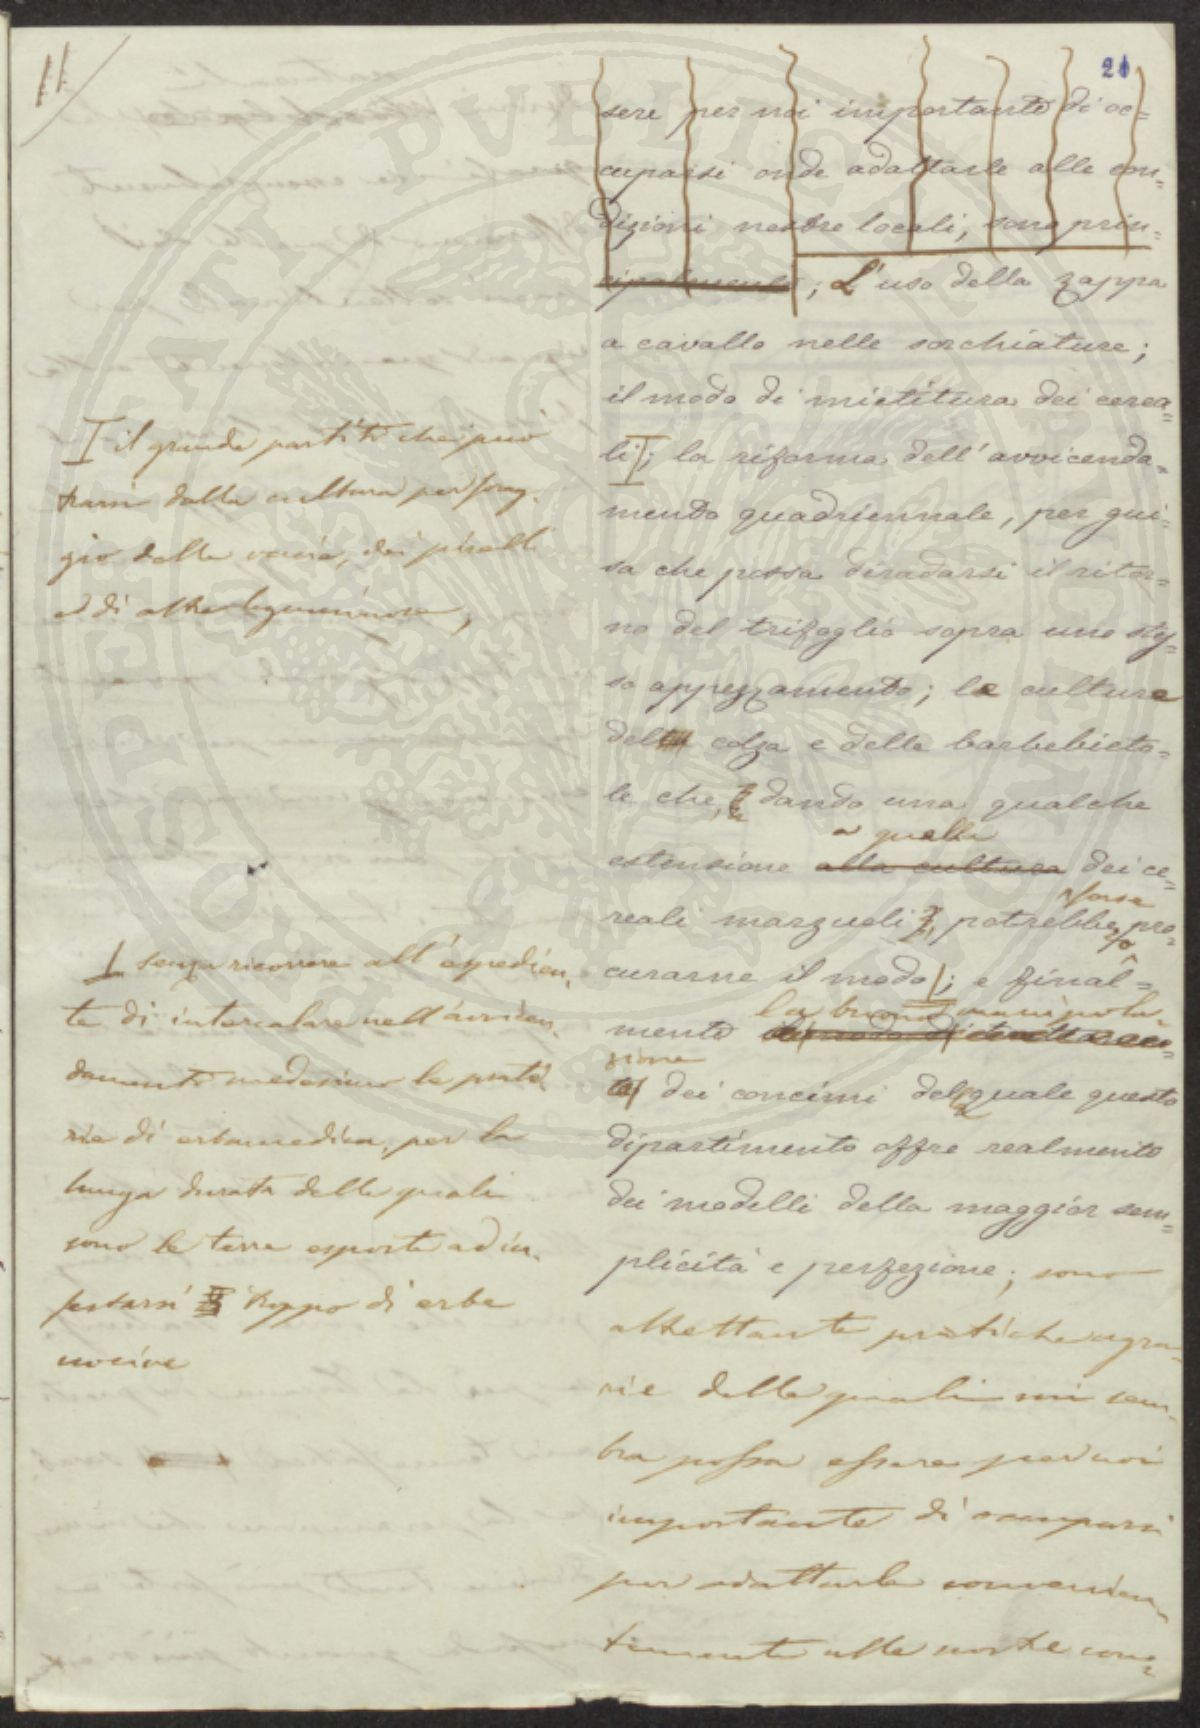 11
21
sere per noi importante di oc=
cuparsi onde adattarle alle con=
dizioni nostre locali, sono prin=
cipalmente; L'uso della zappa
a cavallo nelle sarchiature;
il modo di mietitura dei cerea=
li I; la riforma dell'avvicenda=
mento quadriennale, per gui=
sa che possa diradarsi il ritor=
no del trifoglio sopra uno stes=
so appezzamento; le culture
della colza e delle barbebieto=
le che, dando una qualche
a quella
estensione alla cultura dei ce=
forse
reali marzuoli, potrebbe pro=
curarne il modo; e final=
la buona manipola=
mente
zione
dei concimi del quale questo
dipartimento offre realmente
dei modelli della maggior sem=
plicità e perfezione; sono
altrettante pratiche agra=
rie delle quali mi sem=
bra possa essere per noi
importante di occuparsi
per adattarle convenien=
temente alle nostre con=
I il grande partito che può
trarsi dalla cultura per forag=
gio della veccia, dei piselli
ed di altre leguminose,
I senza ricorrere all'espedien=
te di intercalare nell'avvicen=
damento medesimo le prate=
rie di erbamedica, per la
lunga durata delle quali
sono le terre esposte ad in=
festarsi troppo di erbe
nocive